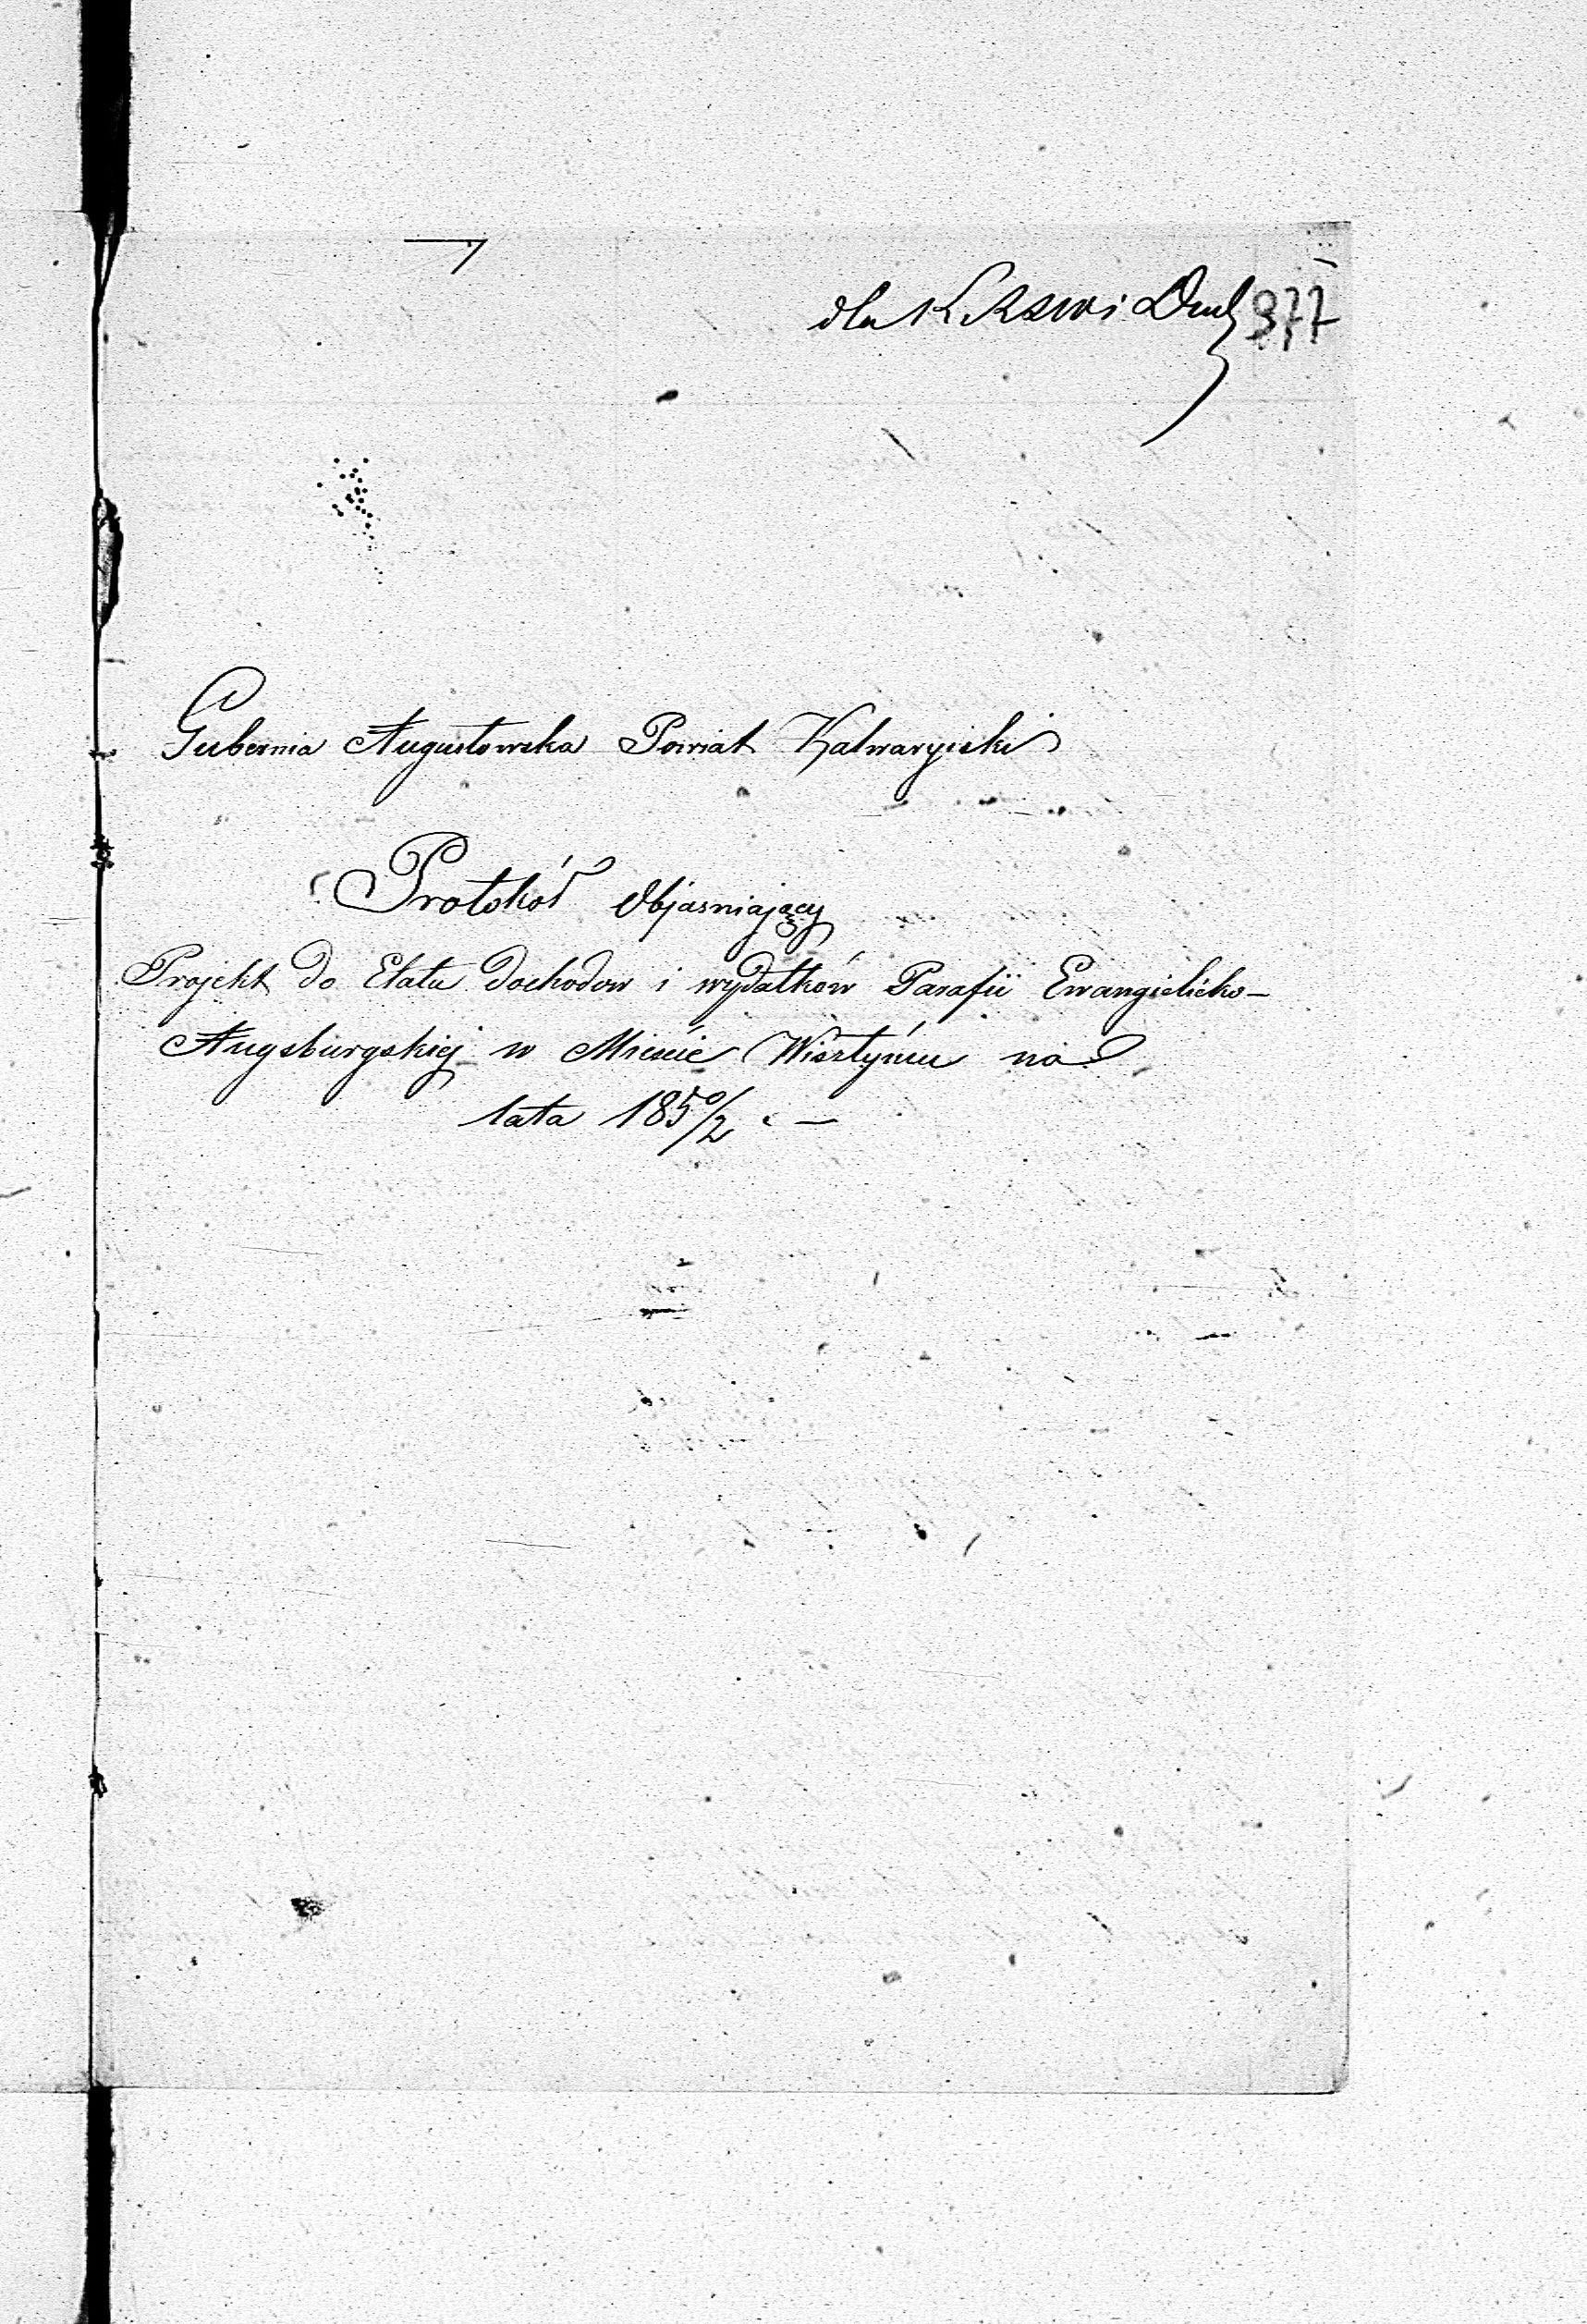 dla K R S W i Duch 377
Gubernia Augustowska Powiat Kalwaryiski
Protokół Objasniający
Projekt do Etatu Dochodow i wydatków Parafii Ewangielicko-
Augsburgskiej w Mieście Wisztyńcu na
lata 1850/2. —